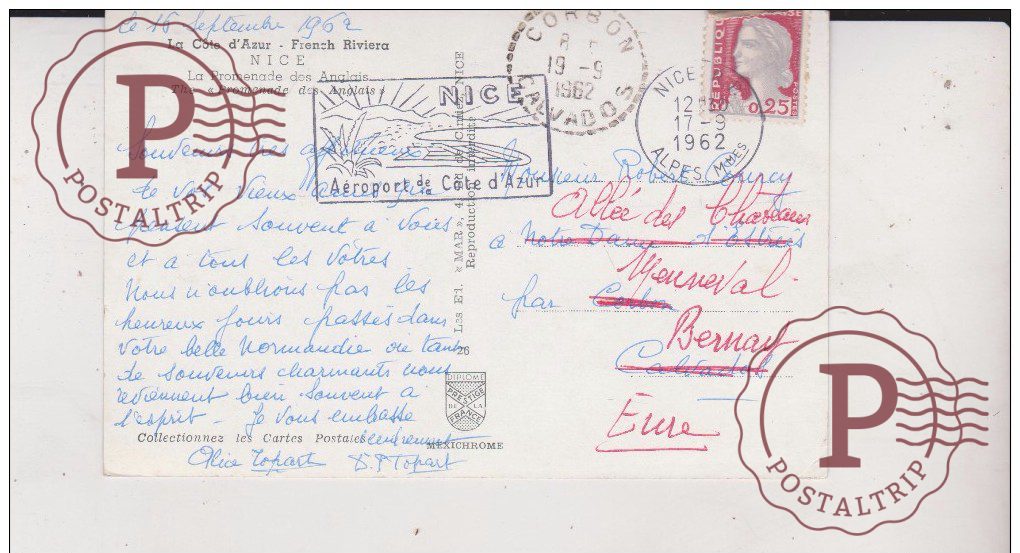 le 16 Septembre 1962
La Côte d'Azur - French Riviera
NICE
La Promenade des Anglais
The « Promenade des Anglais »
Souvenirs très affectueux
de vos vieux amis qui
pensent souvent à vous
et à tous les vôtres
Nous n'oublions pas les
heureux jours passés dans
votre belle Normandie où tant
de souvenirs charmants nous
reviennent bien souvent à
l'esprit - Je vous embrasse
tendrement
Collectionnez les Cartes Postales
Alice Topart
Topart
Les Ed. « MAR », NICE
Reproduction interdite
26
DIPLOME
PRESTIGE
DE LA
FRANCE
MEXICHROME
NICE
Aéroport de la Côte d'Azur
CORBON
19 -9
1962
CALVADOS
NICE
12H
17-9
1962
ALPES MMES
REPUBLIQUE
0,25
Monsieur Robert
Allée des
à Notre Dame d'Estrées
Menneval
par Corbon
Bernay
Calvados
Eure
P
POSTALTRIP
P
POSTALTRIP